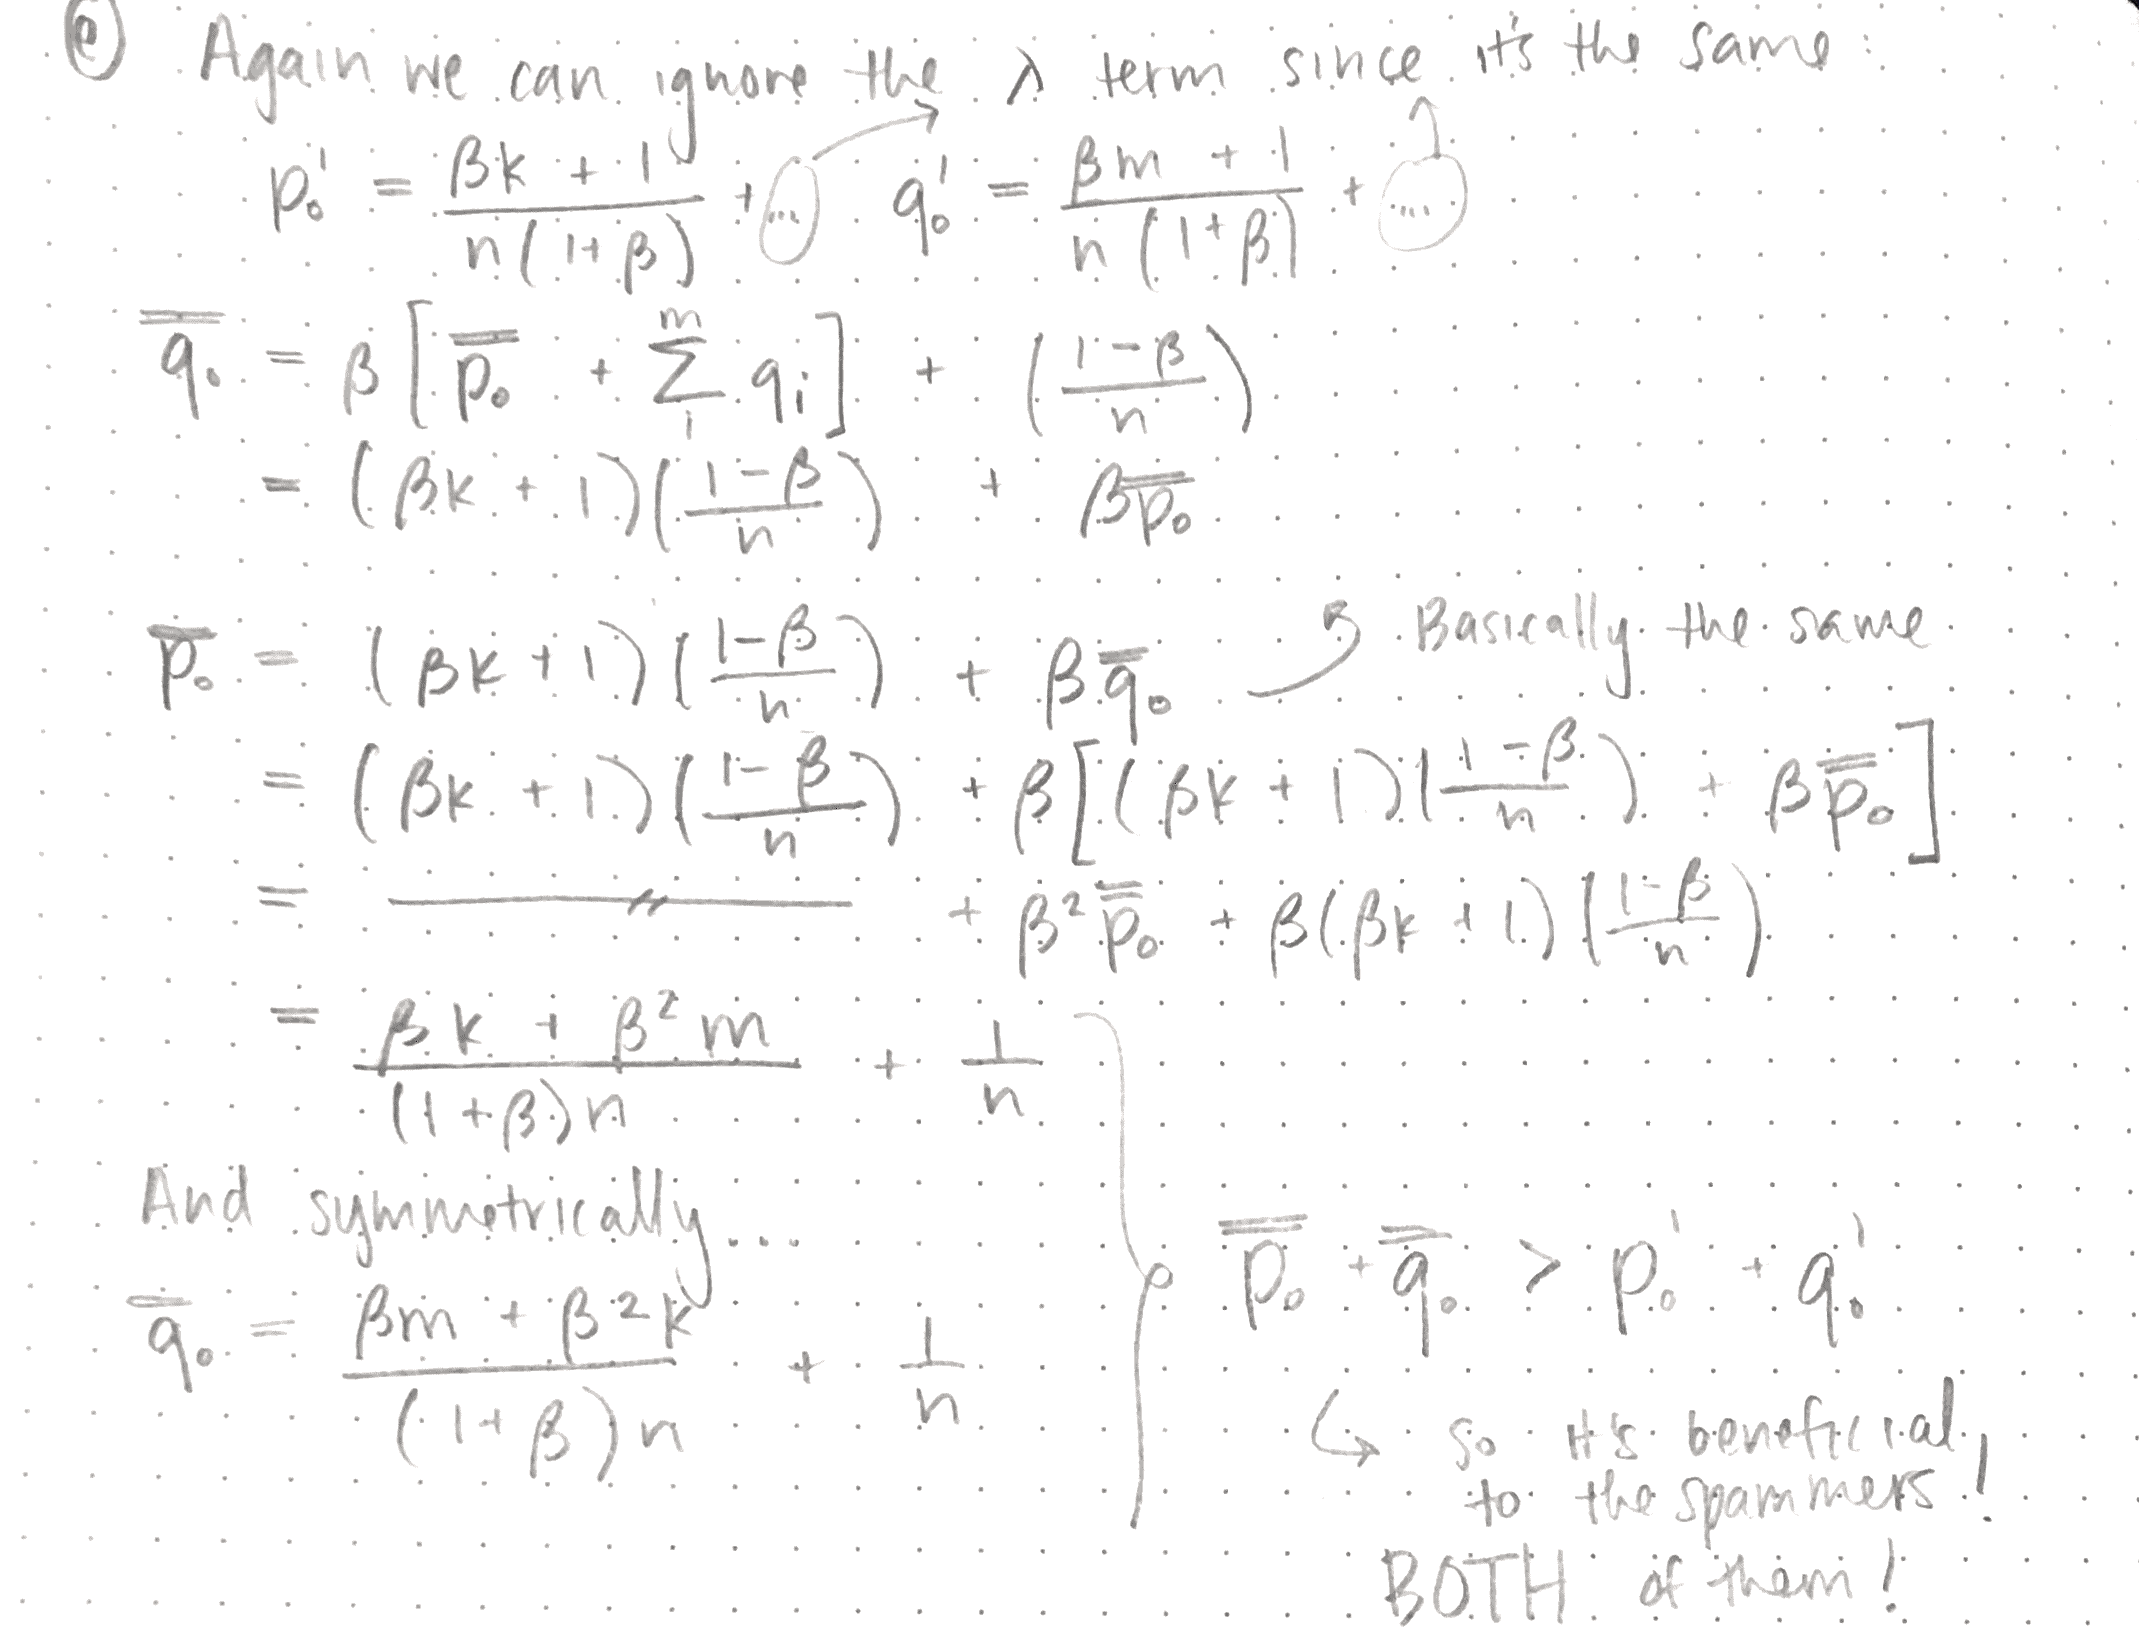 (e) Again we can ignore the λ term since it's the same:
p₀' = (βk + 1)/(n(1+β)) + (...) q₀' = (βm + 1)/(n(1+β)) + (...)
q̿₀ = β[p̿₀ + Σ₁ᵐ qᵢ] + ((1-β)/n)
= (βk + 1)((1-β)/n) + βp̿₀
p̿₀ = (βk + 1)((1-β)/n) + βq̿₀ Basically the same
= (βk + 1)((1-β)/n) + β[(βk + 1)((1-β)/n) + βp̿₀]
= —〃— + β²p̿₀ + β(βk + 1)((1-β)/n)
= (βk + β²m)/((1+β)n) + 1/n
And symmetrically...
q̿₀ = (βm + β²k)/((1+β)n) + 1/n
p̿₀ + q̿₀ > p₀' + q₀'
↳ so it's beneficial
to the spammers!
BOTH of them!